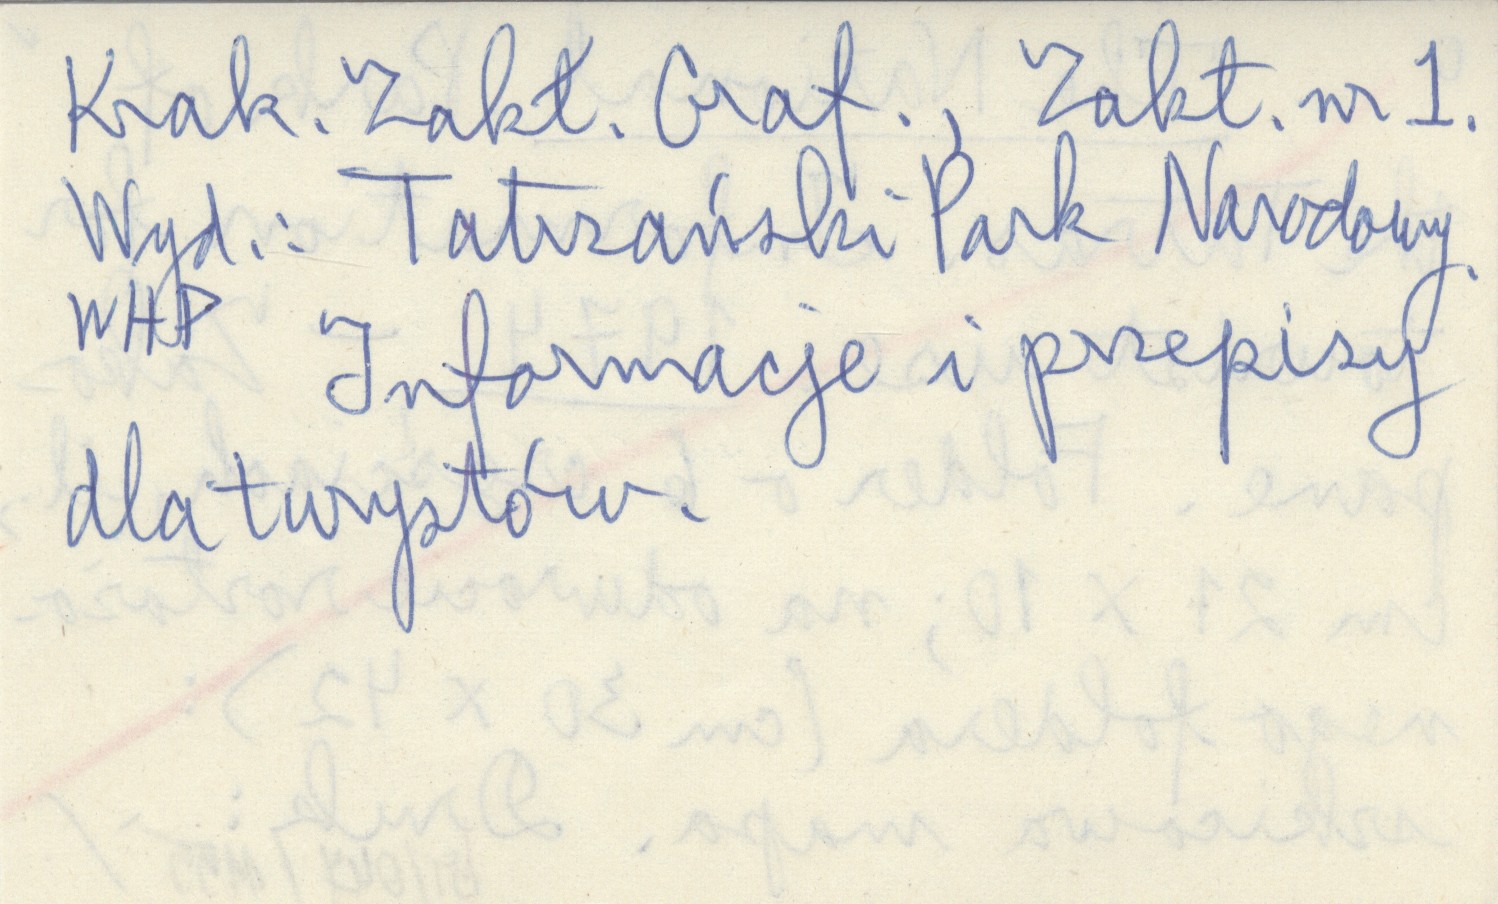 Krak. Zakł. Graf., Zakł. nr 1.
Wyd.: Tatrzański Park Narodowy.
WHP Informacje i przepisy
dla turystów.